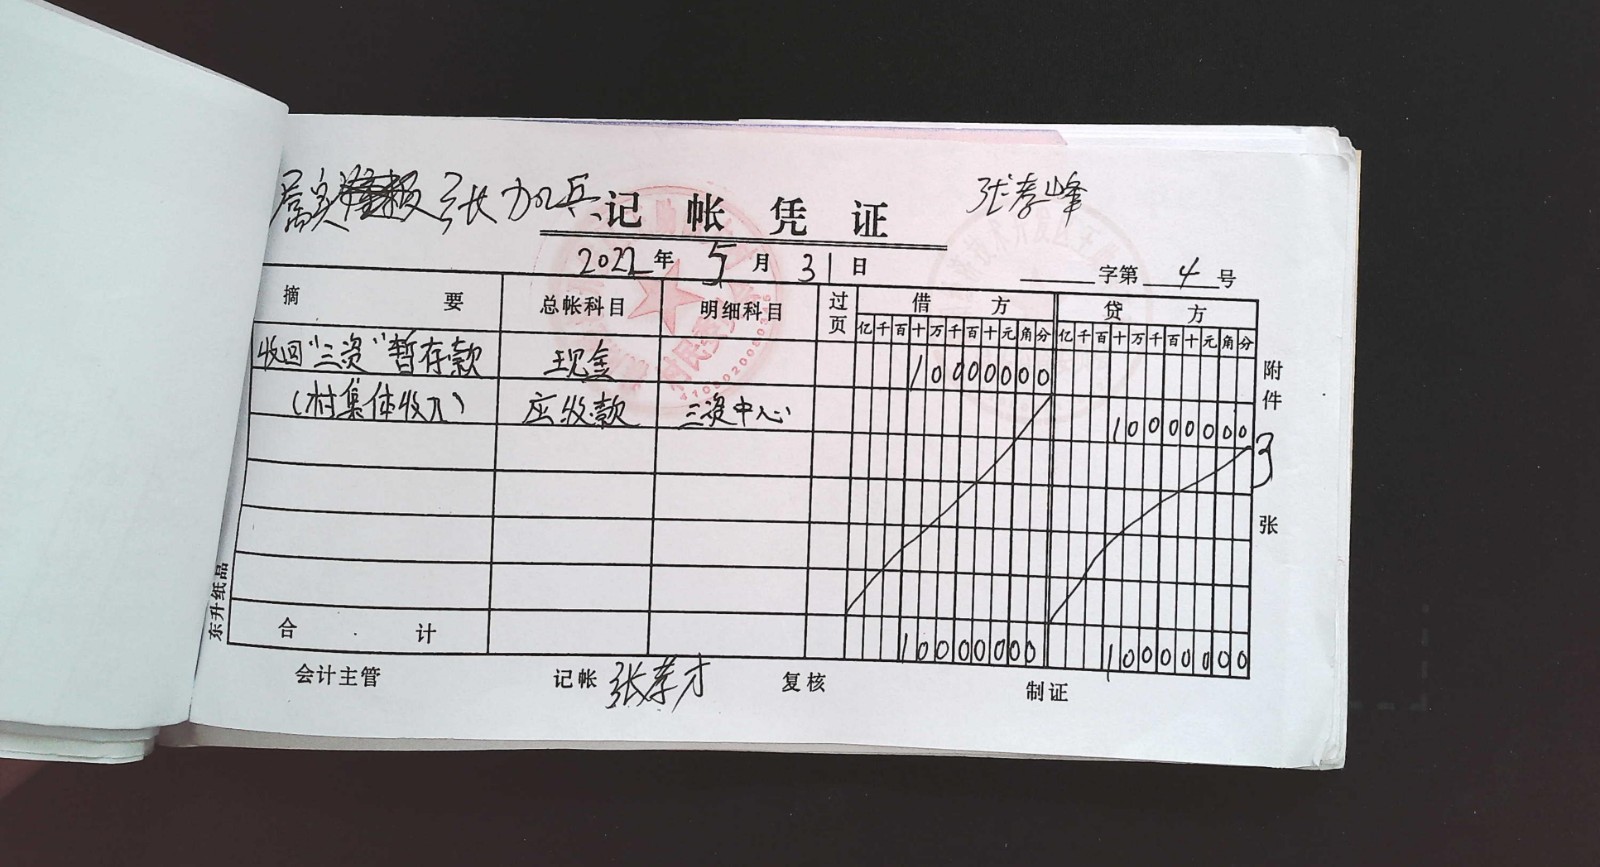 属实 张加兵 张孝峰
记帐凭证
2022年 5月 31日 字第 4 号
摘要 总帐科目 明细科目 过页 借方 贷方
亿千百十万千百十元角分 亿千百十万千百十元角分
收回“三资”暂存款 现金 10000000
(村集体收入) 应收款 三资中心 10000000
附件 3 张
合计 10000000 10000000
会计主管 记帐 张孝才 复核 制证
东升纸品